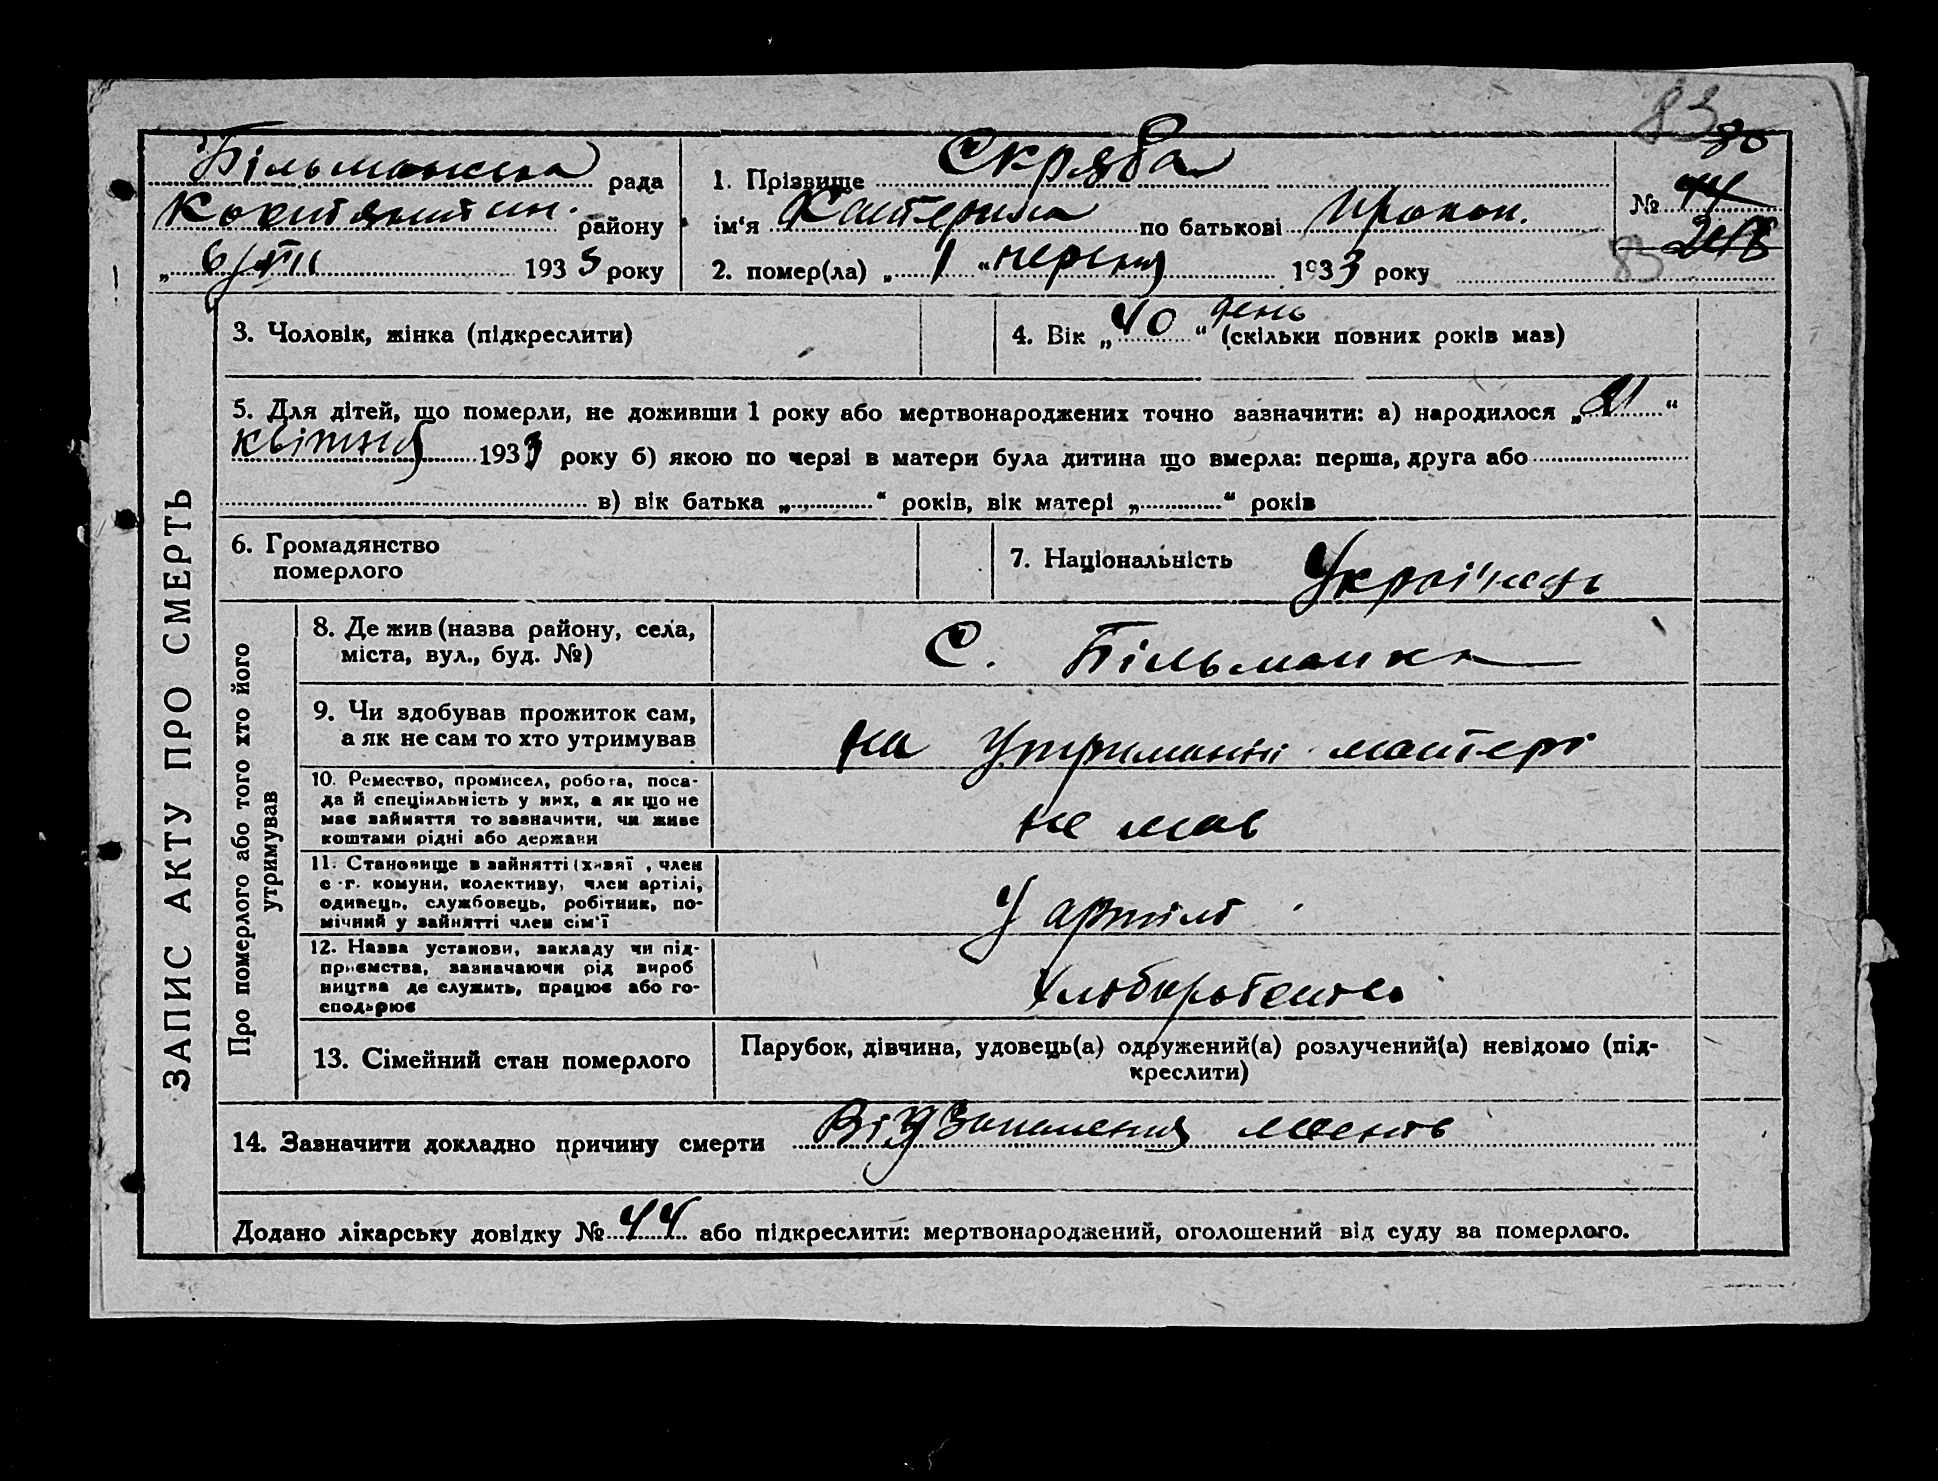 83
80
Більманська рада
1. Прізвище Скряба
№ 44
Костянтин. району
ім‘я Катерина по батькові Прокоп.
248
„ 6/VII 1933 року
2. помер(ла) „ 1 “ червня 1933 року
83
3. Чоловік, жінка (підкреслити)
4. Вік „ 40 “ день (скільки повних років мав)
5. Для дітей, що померли, не доживши 1 року або мертвонароджених точно зазначити: а) народилося „ 21 “
квітня 1933 року б) якою по черзі в матери була дитина що вмерла: перша, друга або
в) вік батька „ “ років, вік матері „ “ років
6. Громадянство
померлого
7. Національність Українець
ЗАПИС АКТУ ПРО СМЕРТЬ
Про померлого або того хто його
утримував
8. Де жив (назва району, села,
міста, вул., буд. №)
С. Більманка
9. Чи здобував прожиток сам,
а як не сам то хто утримував
на утриманні матері
10. Ремество, промисел, робота, поса-
да й спеціяльність у них, а як що не
має зайняття то зазначити, чи живе
коштами рідні або держави
не мав
11. Становище в зайнятті (хазяї , член
с -г. комуни, колективу, член артілі,
одинець, службовець, робітник, по-
мічний у зайнятті член сім'ї
У артілі
12. Назва установи, закладу чи під-
приємства, зазначаючи рід вироб
ництва де служить, працює або го-
сподарює
Хліборобство
13. Сімейний стан померлого
Парубок, дівчина, удовець(а) одружений(а) розлучений(а) невідомо (під-
креслити)
14. Зазначити докладно причину смерти Від запалення
Додано лікарську довідку № 44 або підкреслити: мертвонароджений, оголошений від суду за померлого.